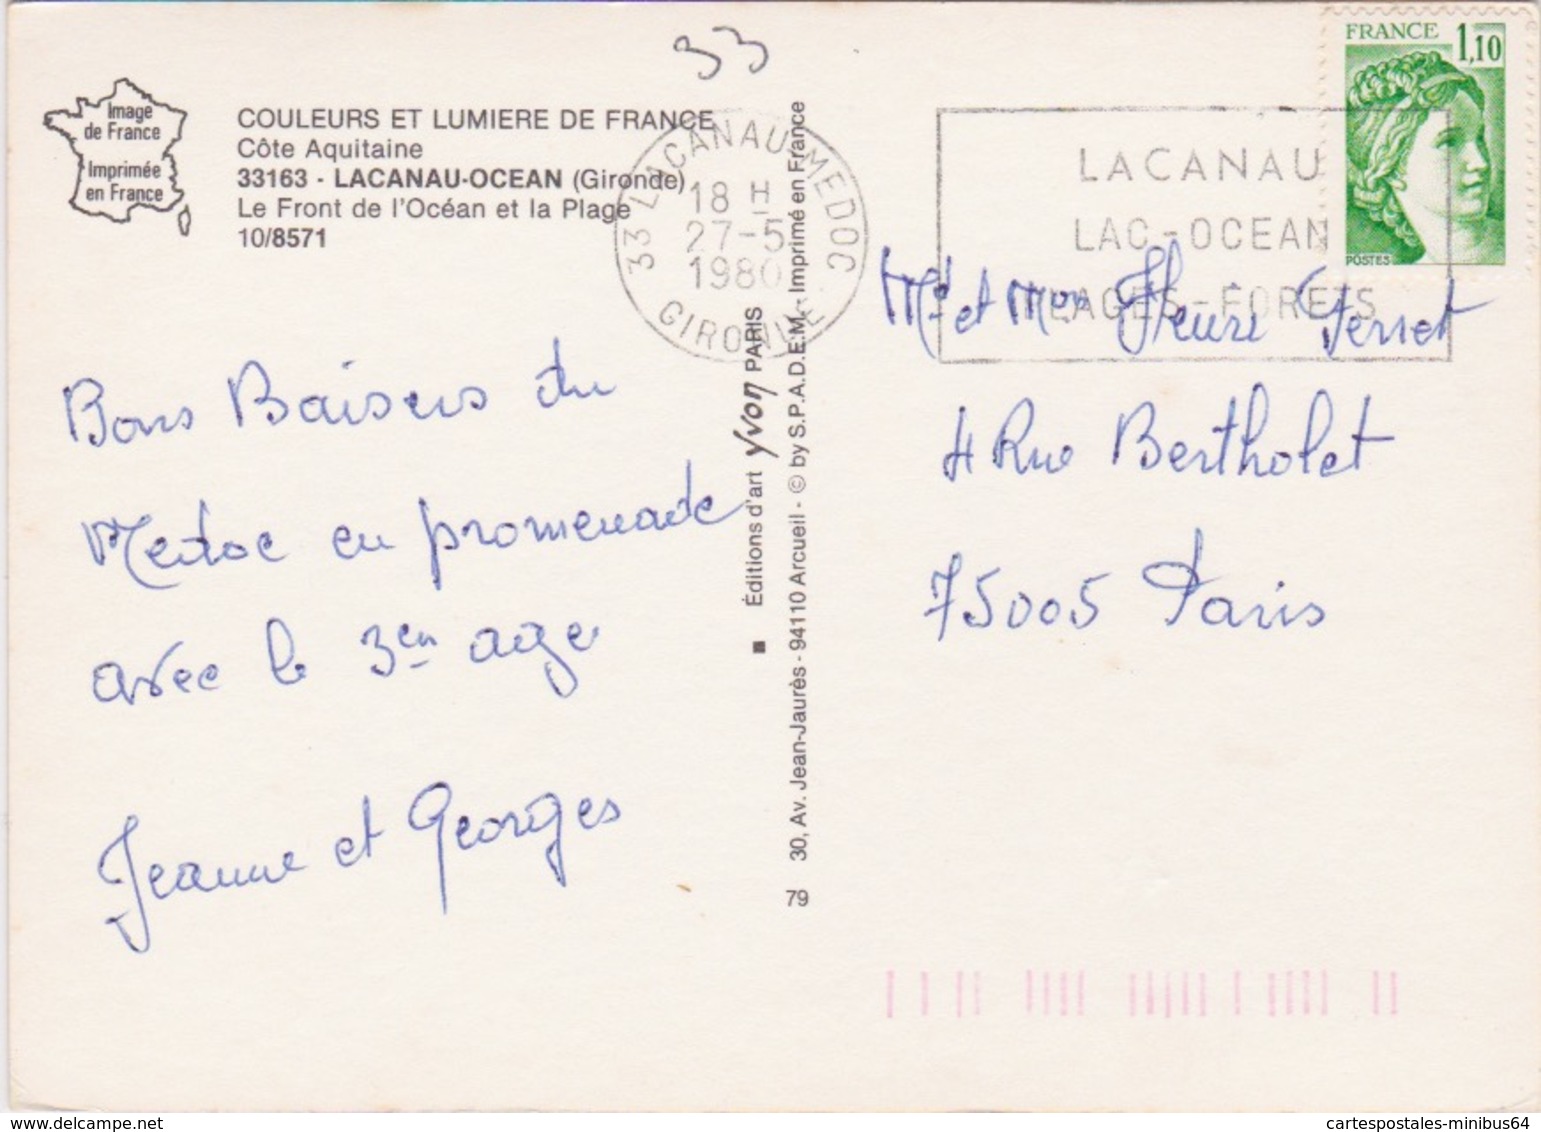 33
Image
de France
Imprimée
en France
COULEURS ET LUMIERE DE FRANCE
Côte Aquitaine
33163 - LACANAU-OCEAN (Gironde)
Le Front de l'Océan et la Plage
10/8571
33 LACANAU-MEDOC
18 H
27-5
1980
GIRONDE
LACANAU
LAC-OCEAN
PLAGES-FORETS
FRANCE 1,10
POSTES
Bons Baisers du
Medoc en promenade
avec le 3en age
Jeanne et Georges
■ Éditions d'art yvon PARIS
30, Av. Jean-Jaurès - 94110 Arcueil - © by S.P.A.D.E.M. - Imprimé en France
79
Md et Mon Henri Ferret
4 Rue Bertholet
75005 Paris
delcampe.net
cartespostales-minibus64